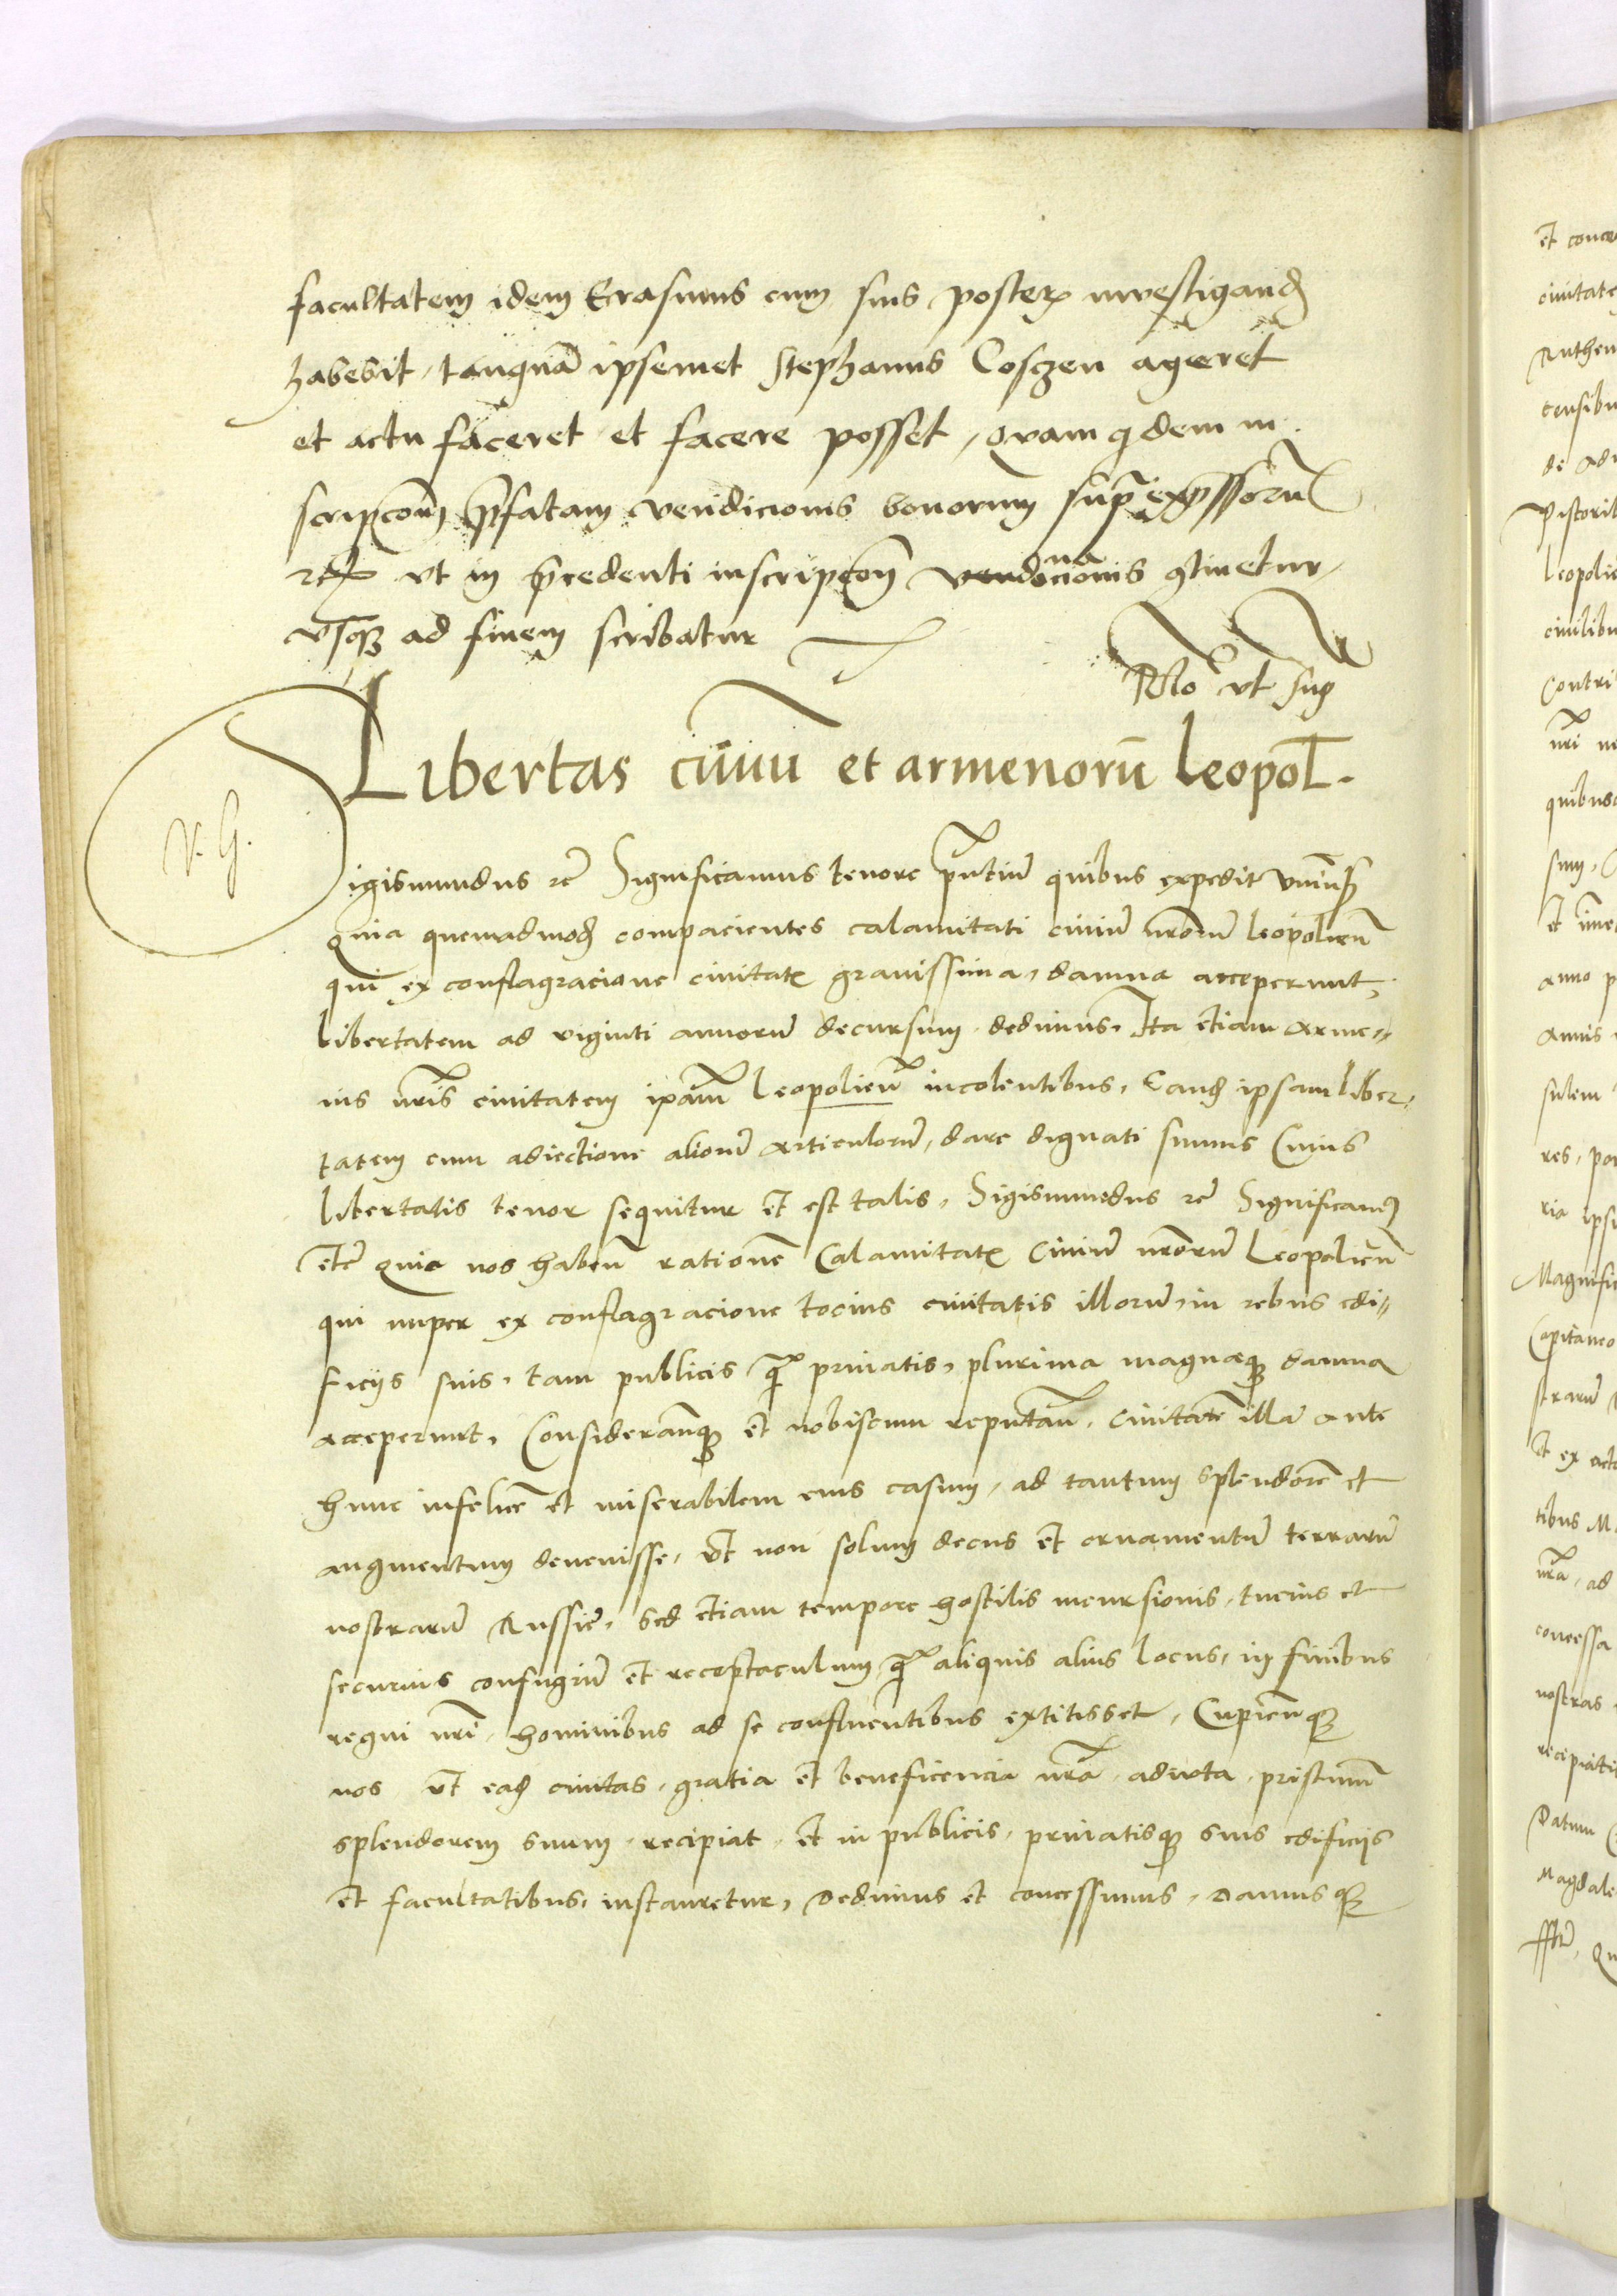 facultatem idem Erasmus cum suis posteris investigand
habebit, tanquā ipsemet Stephanus Coschen ageret
et actu faceret et facere posset, Quam qdem in
scripcoem pfatam vendicionis bonorum supra expssorū
etc ut in precedenti inscripcoem vendicionis continetur,
usq ad finem scribatur
Rlo ut sup
Libertas civiū et armenorū leopol.
N. G.
Sigismundus etc Significamus tenore pntiū quibus expedit univsis
Quia quemadmod compacientes calamitati civiū nrorū leopolien
qui ex conflagracione civitatis gravissima, damna acceperunt,
libertatem ad viginti annorū decursum dedimus, Ita etiam Arme-
nis nris civitatem ipam leopolien incolentibus, Eand ipsam liber-
tatem cum adiectione aliorū articulorū, dare dignati sumus Cuius
libertatis tenor sequitur et est talis, Sigismundus etc Significam9
etc quia nos haben rationē Calamitatis Civiū nrorū Leopolien
qui nuper ex conflagracione tocius civitatis illorū, in rebus edi-
ficijs suis, tam publicis q privatis, plurima magnaq damna
acceperunt, Considerantesq et nobiscum reputan, civitatē illā ante
hunc infelicē et miserabilem eius casum, ad tantum splendorē et
augmentum devenisse, ut non solum decus et ornamentū terrarū
nostrarū Russie, sed etiam tempore hostilis incursionis, tucius et
securius confugiū et receptaculum, q aliquis alius locus, in finibus
regni nri, hominibus ad se confluentibus extitisset, Cupienq
nos, ut ead civitas, gratia et beneficencia nrā, adiuta, pristinum
splendorem suum, recipiat, et in publicis, privatisq suis edificijs
et facultatibus, instauretur, Dedimus et concessimus, Damusq